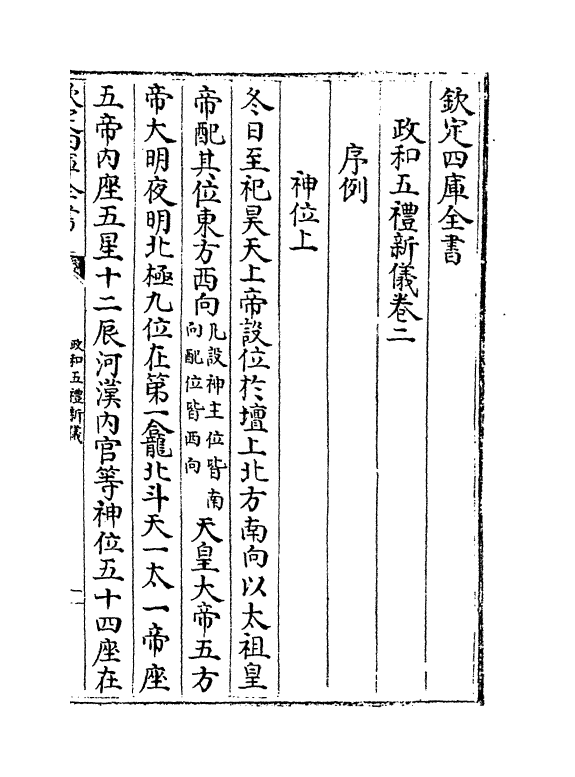 欽定四庫全書
政和五禮新儀卷二
序例
神位上
冬日至祀昊天上帝設位於壇上北方南向以太祖皇
帝配其位東方西向凡設神主位皆南向配位皆西向天皇大帝五方
帝大明夜明北極九位在第一龕北斗天一太一帝座
五帝内座五星十二辰河漢内官等神位五十四座在
政和五禮新儀